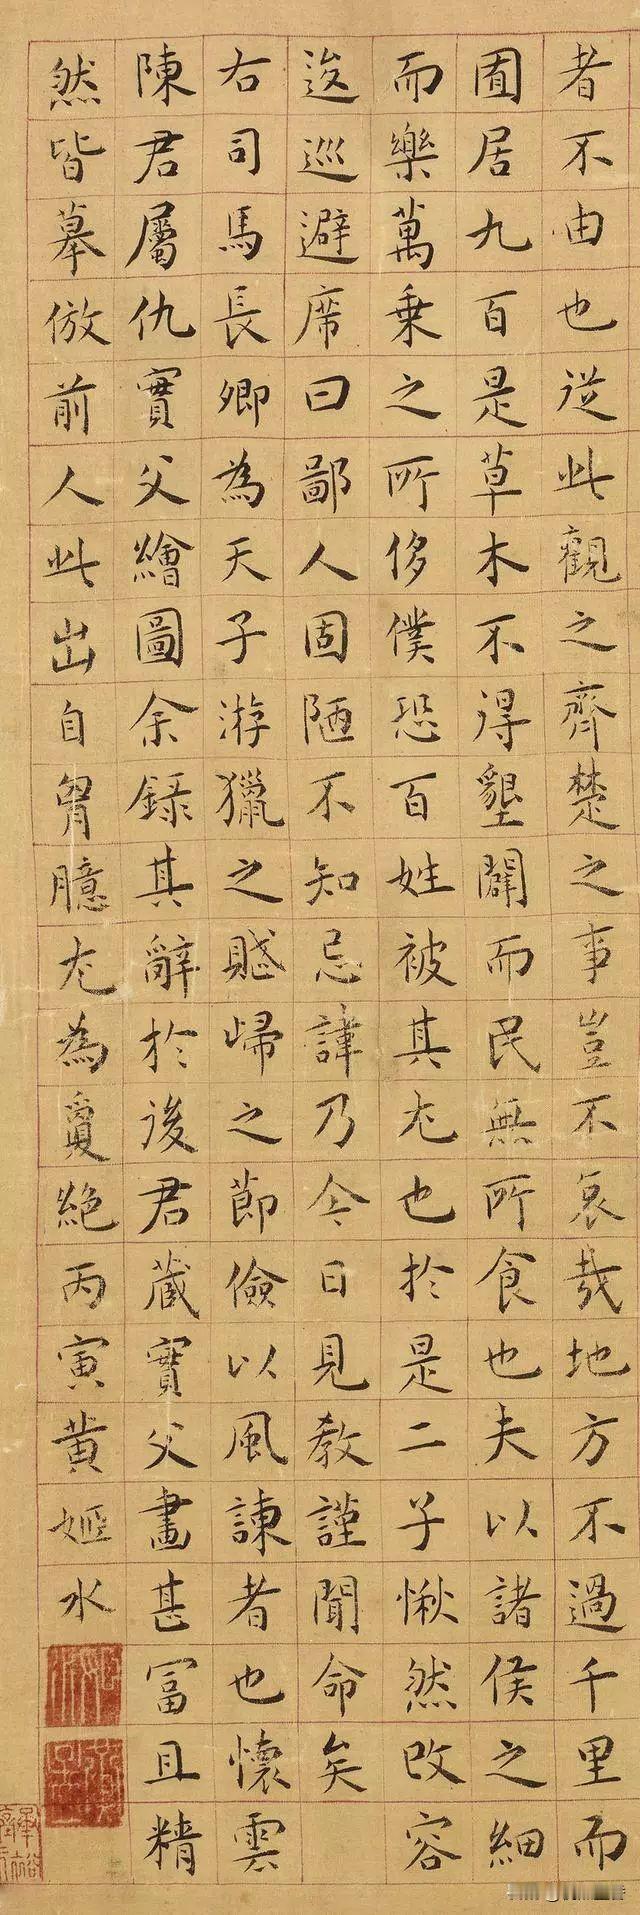 者不由也從此觀之齊楚之事豈不哀哉地方不過千里而
囿居九百是草木不得墾闢而民無所食也夫以諸侯之細
而樂萬乗之所侈僕恐百姓被其尤也於是二子愀然改容
逡巡避席曰鄙人固陋不知忌諱乃今日見教謹聞命矣
右司馬長卿為天子游獵之賦歸之節儉以風諫者也懷雲
陳君屬仇實父繪圖余録其辭於後君蔵實父畫甚冨且精
然皆摹倣前人此出自胷臆尤為敻絶丙寅黄姬水